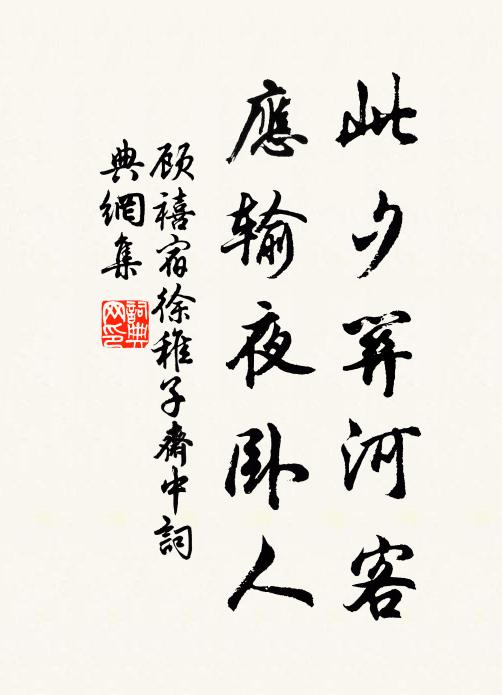 此夕關河客
應输夜卧人
顾禧宿徐稚子齋中詞
典網集
詞典网印